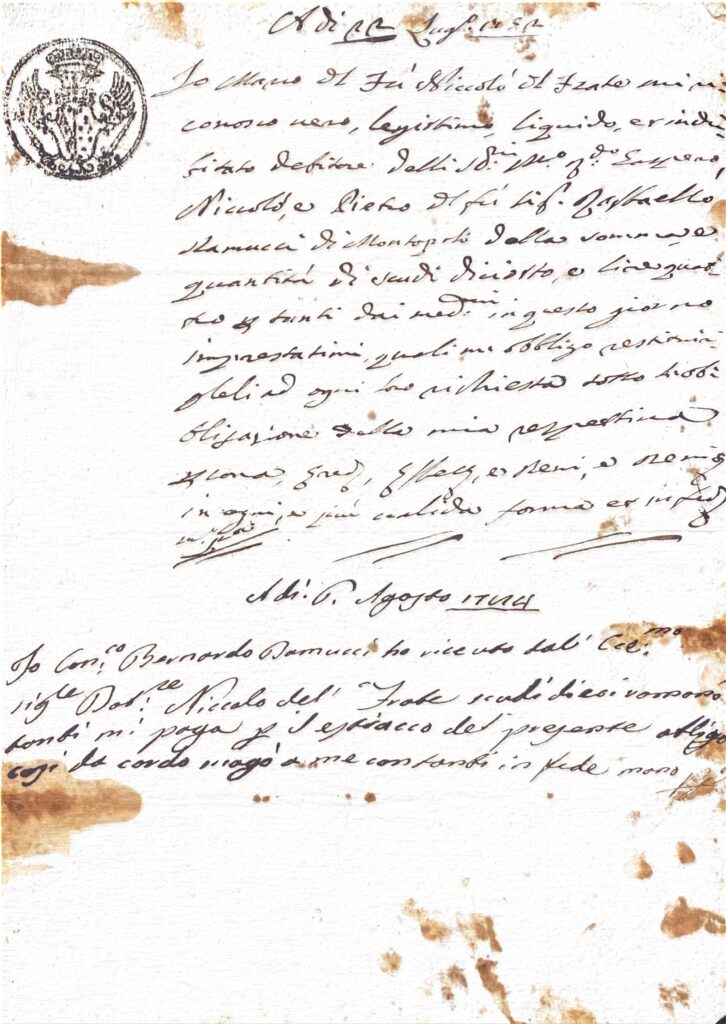 Adi 22 Lug.o
Io Marco del Fù Niccolò del Frate mi ri
conosco vero, legittimo, liquido, et indu
bitato debitore delli SS.ri
Niccolò, e Pietro del fù Sig.r Raffaello
Ramucci di Montopoli della somma e
quantità di scudi diciotto, e lire quat
tro tanti dai med.mi in questo giorno
imprestatimi, quali mi obbligo restituir
gleli ad ogni loro richiesta sotto l'obbli
bligazione della mia respettiva
Ered, et Beni, e Beni
in ogni, e più valida forma et in fede
m.o p.a
Adi. P. Agosto
Io Can.co Bernardo Ramucci ho riceuto dal' Ecc.mo
sig.re Dot.re Niccolo del' Frate scudi dieci romani
tanti mi paga p il estiacco del presente obligo
così da cordo a me contanti in fede mano